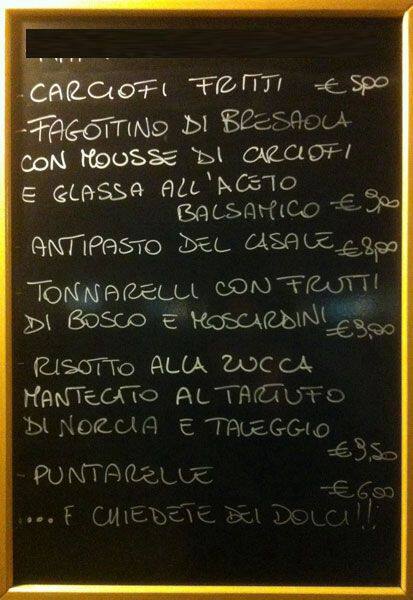 - CARCIOFI FRITTI € 5,00
- FAGOTTINO DI BRESAOLA
CON MOUSSE DI CARCIOFI
E GLASSA ALL'ACETO
BALSAMICO € 9,00
- ANTIPASTO DEL CASALE € 8,00
- TONNARELLI CON FRUTTI
DI BOSCO E MOSCARDINI
€ 9,00
- RISOTTO ALLA ZUCCA
MANTECATO AL TARTUFO
DI NORCIA E TALEGGIO
€ 9,50
- PUNTARELLE
€ 6,00
.... E CHIEDETE DEI DOLCI!!